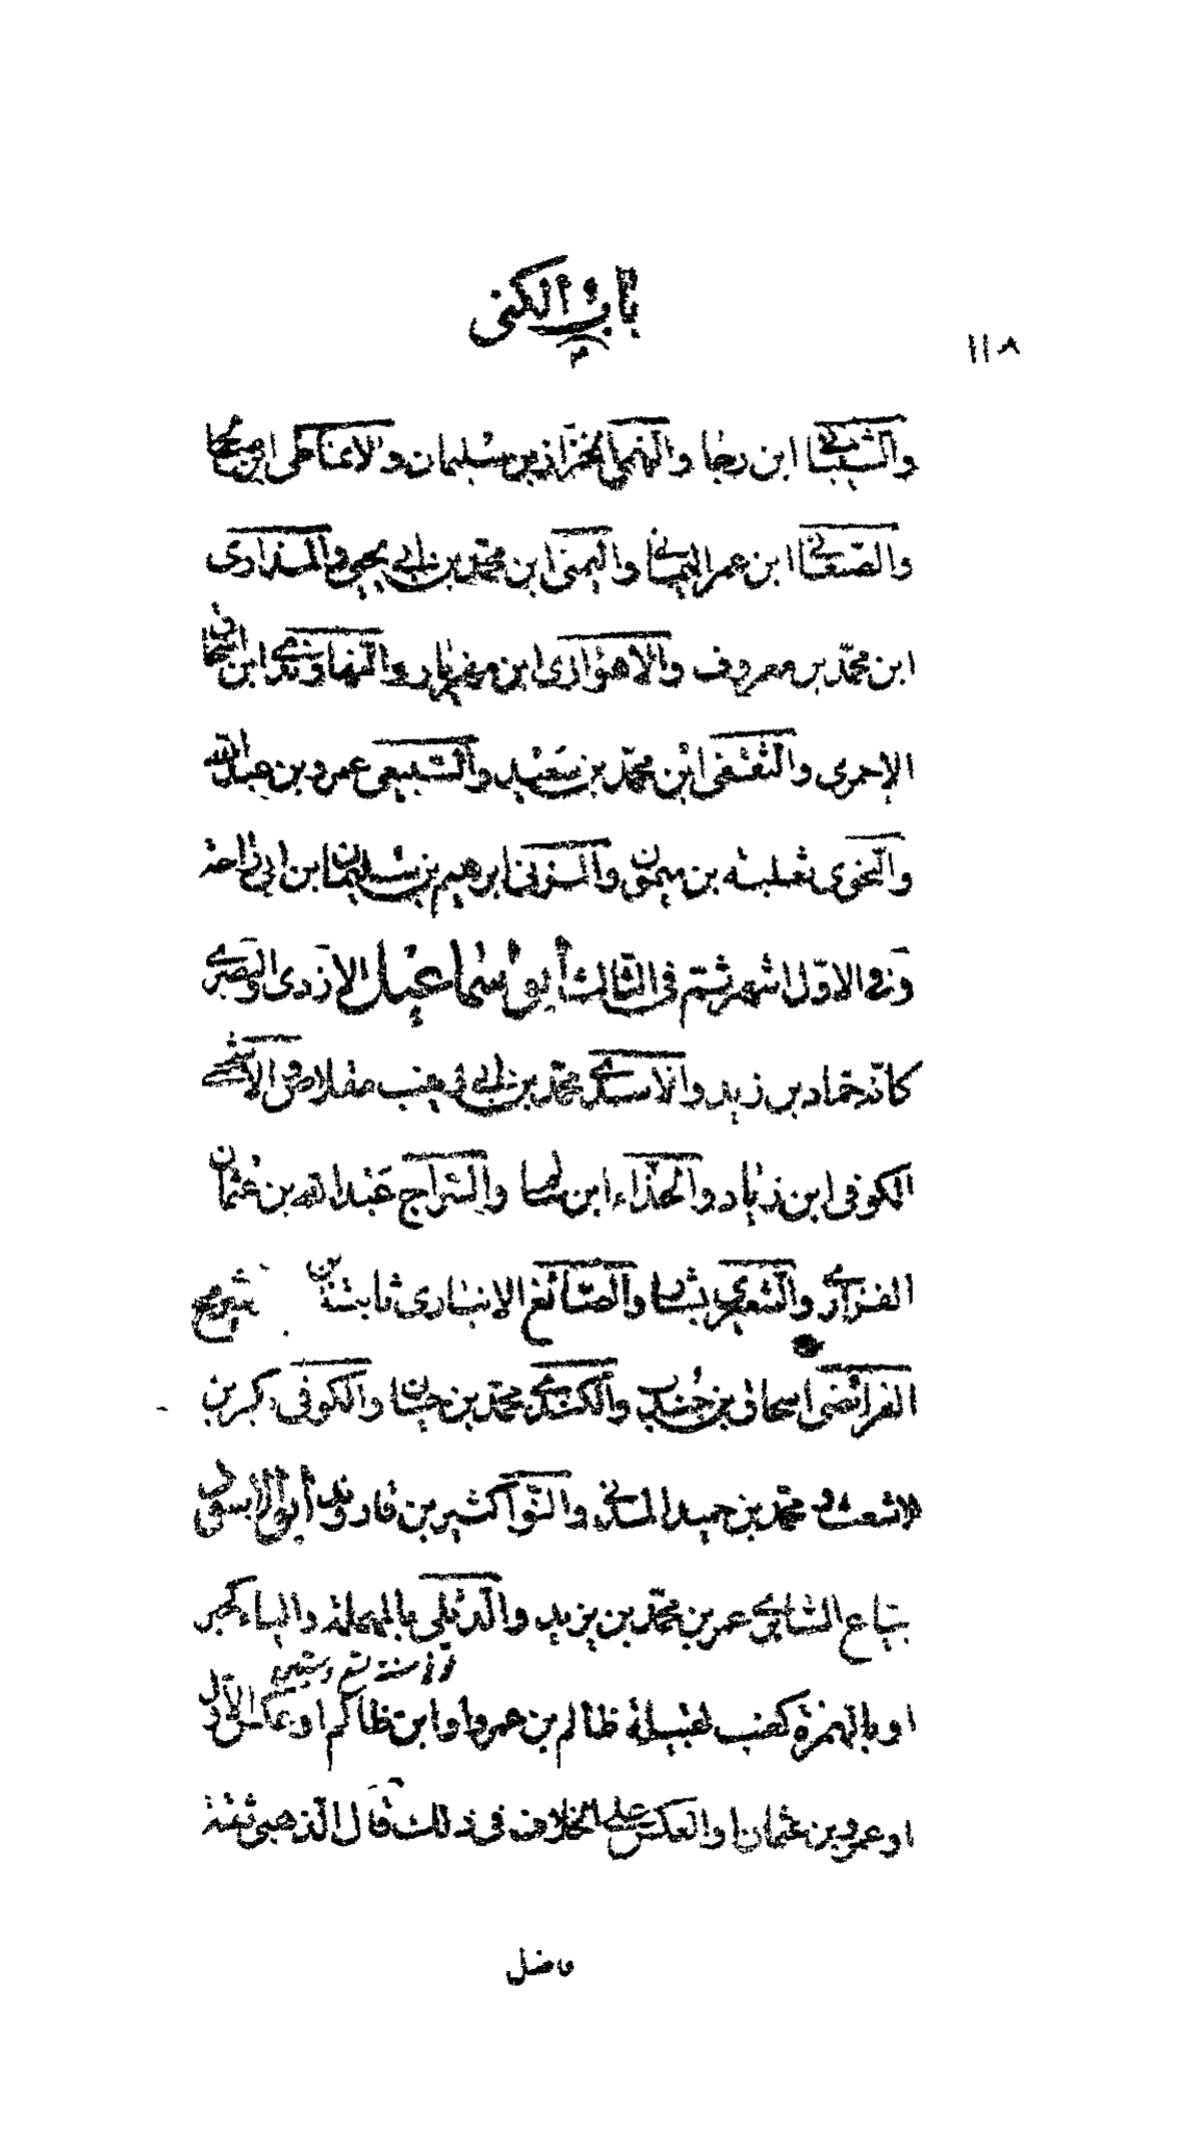 باب الكنى
١١٨
والشيبانى ابن رجا والنهمى الخزاز بن سليمان والانماطى ابن صالح
والصنعانى ابن عمر اليمانى واليمنى ابن محمد بن ابى يحيى والمذارى
ابن محمد بن معروف والاهوازى ابن مهزيار والنهاوندى ابن اسحاق
الاحمرى والثقفى ابن محمد بن سعيد والسبيعى عمرو بن عبدالله
والنحوى ثعلبة بن ميمون والمزنى ابرهيم بن سليمان ابن ابى داحه
وفى الاول اشهر ثم فى الثالث أبو اسماعيل الازدى والبصرى
كانه حماد بن زيد والاسدى محمد بن ابى زينب مقلاص والاشجعى
الكوفى ابن زياد والحذاء ابن والسراج عبدالله بن عثمان
الفزارى والشعيرى بشار والصائغ الانبارى ثابت بن شريح
الفرائضى اسحاق بن جندب والكندى محمد بن حنان والكوفى بكر بن
الاشعث و محمد بن حميد المدنى والنوا كثير بن قاروند أبو الاسود
بياع السابرى عمر بن محمد بن يزيد والدئلى بالمهملة والياء كجبر
او بالهمزة كعنب لقبيلة ظالم بن عمرو او ابن ظالم او بعكس الاول
او عمرو بن عثمان او العكس على الخلاف فى ذلك قال الذهبى ثقة
فاضل